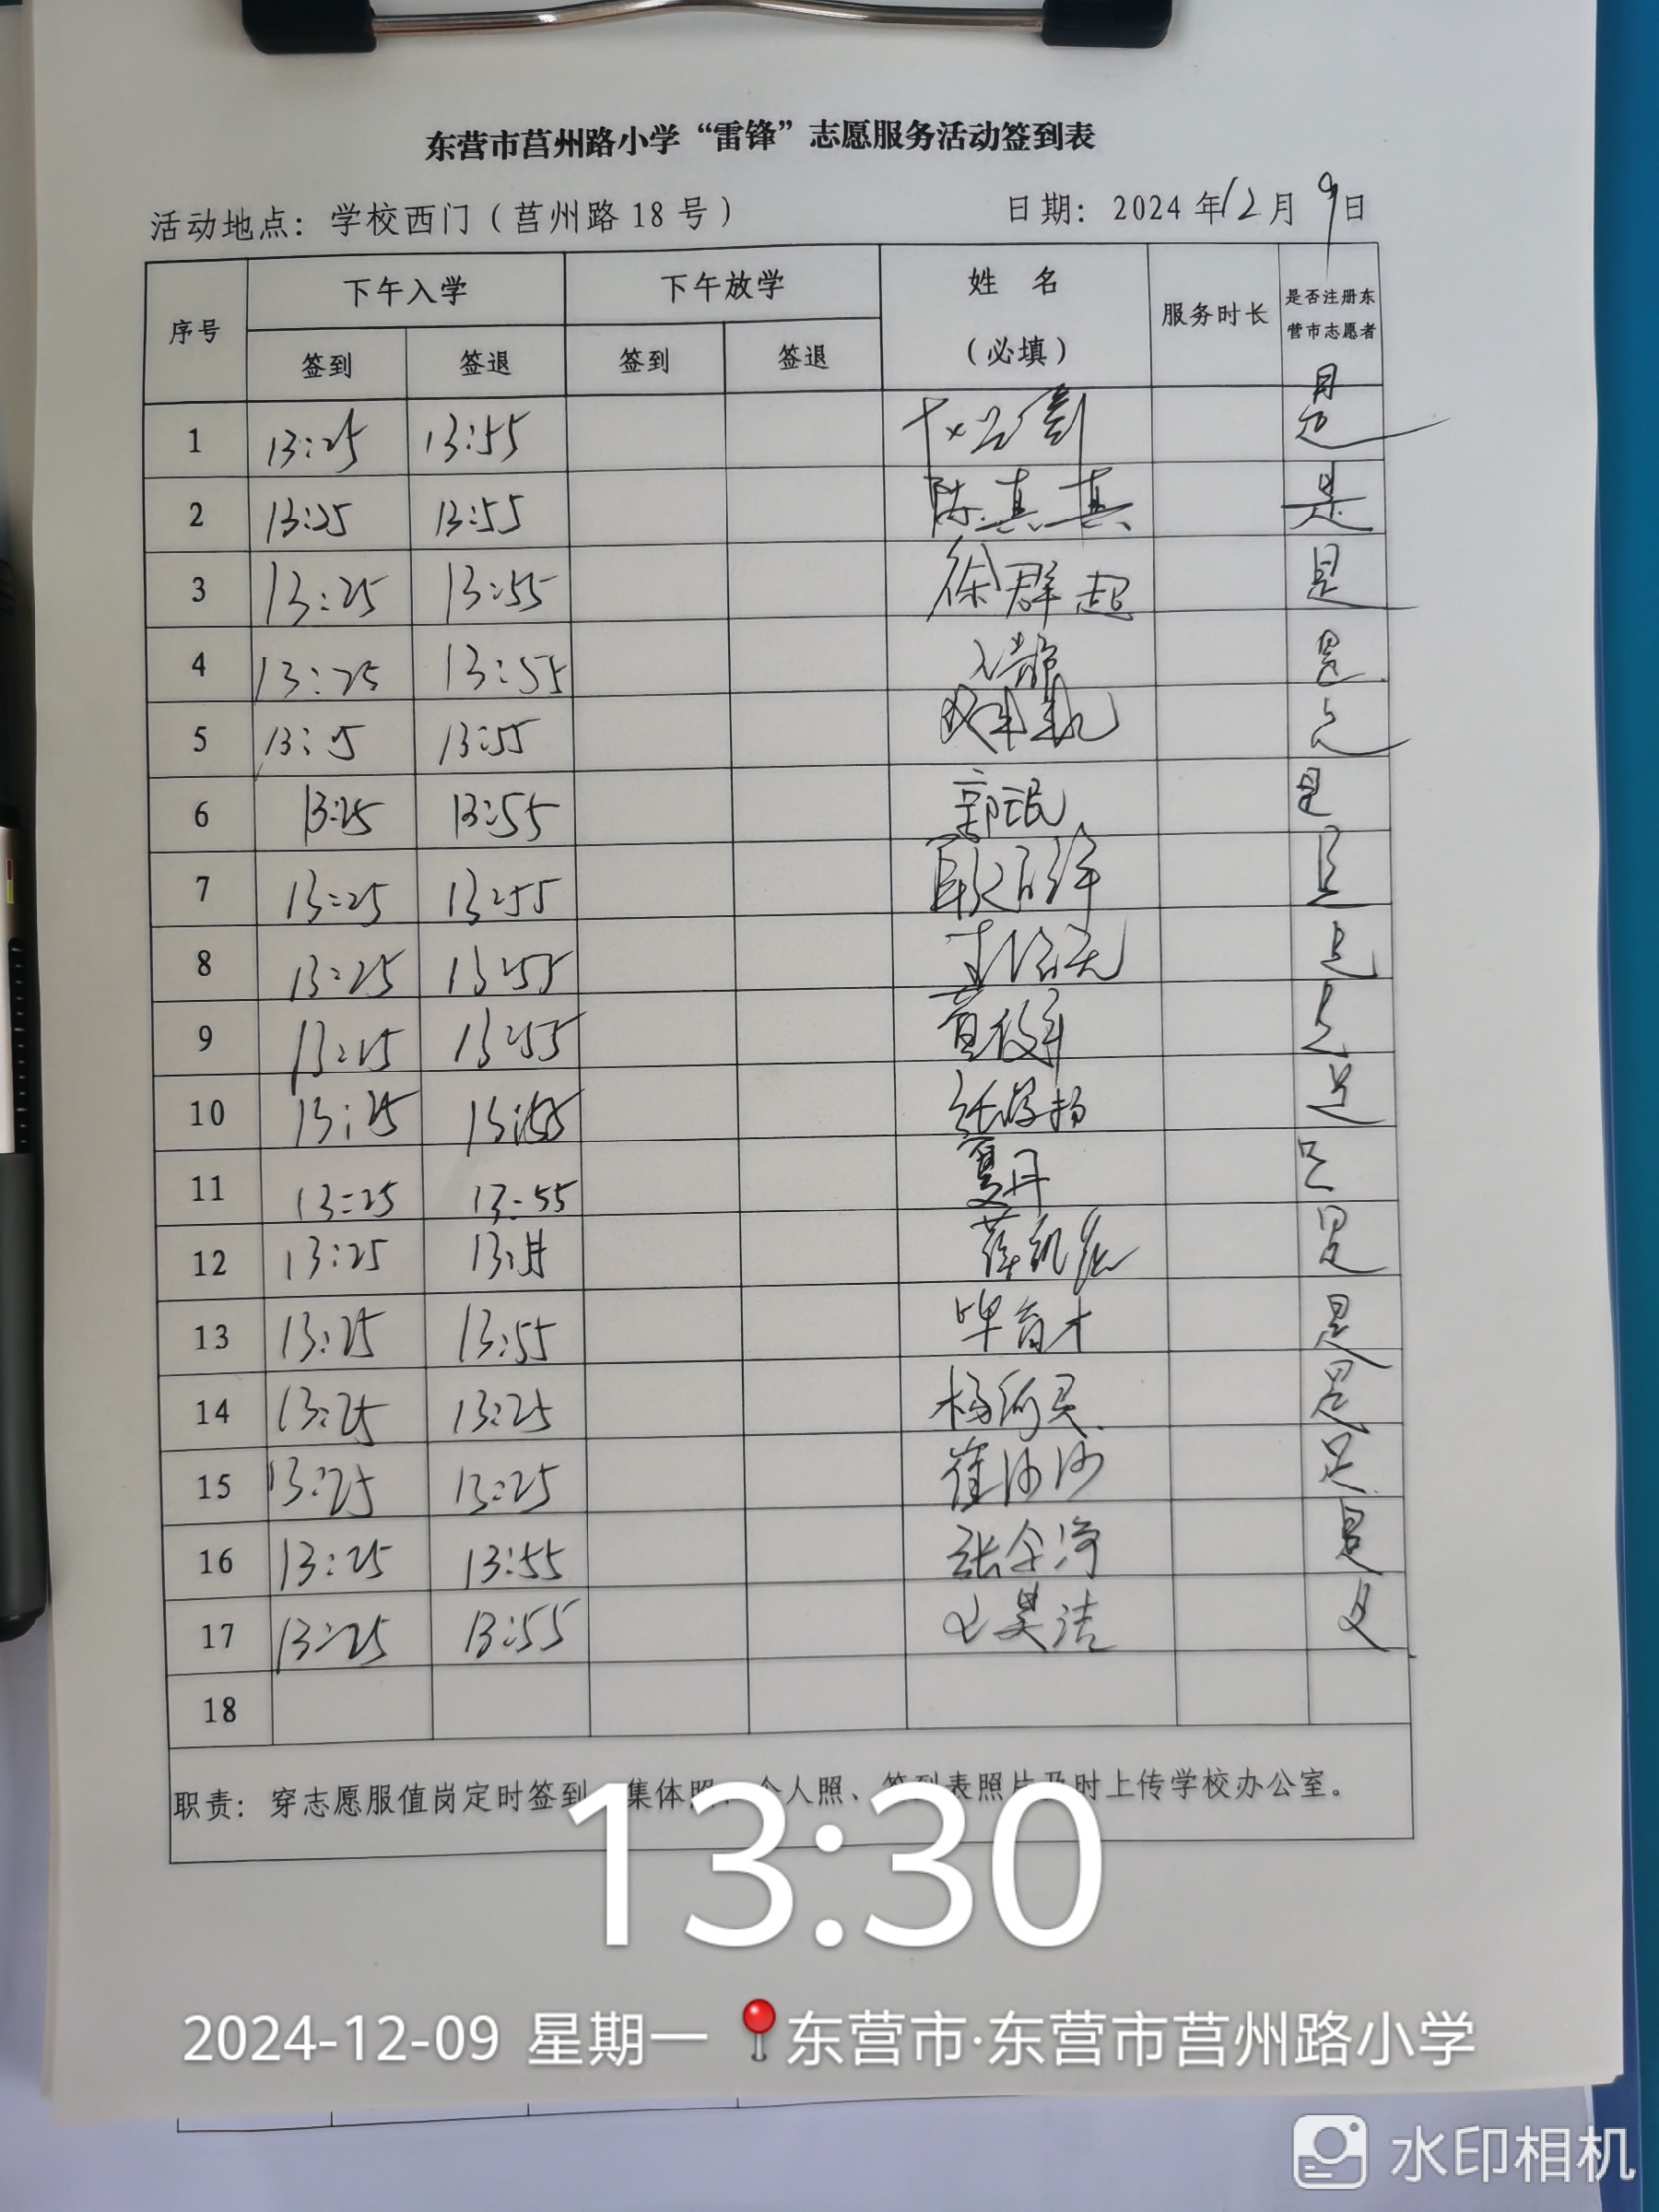 东营市莒州路小学“雷锋”志愿服务活动签到表
活动地点：学校西门（莒州路18号） 日期：2024年12月9日
序号 下午入学 下午放学 姓名（必填） 服务时长 是否注册东营市志愿者
签到 签退 签到 签退
1 13:25 13:55 是
2 13:25 13:55 陈真真 是
3 13:25 13:55 徐群超 是
4 13:25 13:55 是
5 13:25 13:55 是
6 13:25 13:55 郭 是
7 13:25 13:55 是
8 13:25 13:55 是
9 13:25 13:55 是
10 13:25 13:55 是
11 13:25 13:55 夏丹 是
12 13:25 薛凯 是
13 13:25 13:55 毕育才 是
14 13:25 13:25 杨 是
15 13:25 13:25 崔沙沙 是
16 13:25 13:55 张 是
17 13:25 13:55 昊洁 是
18
职责：穿志愿服值岗定时签到、集体照、个人照、签到表照片及时上传学校办公室。
13:30
2024-12-09 星期一 东营市·东营市莒州路小学
水印相机